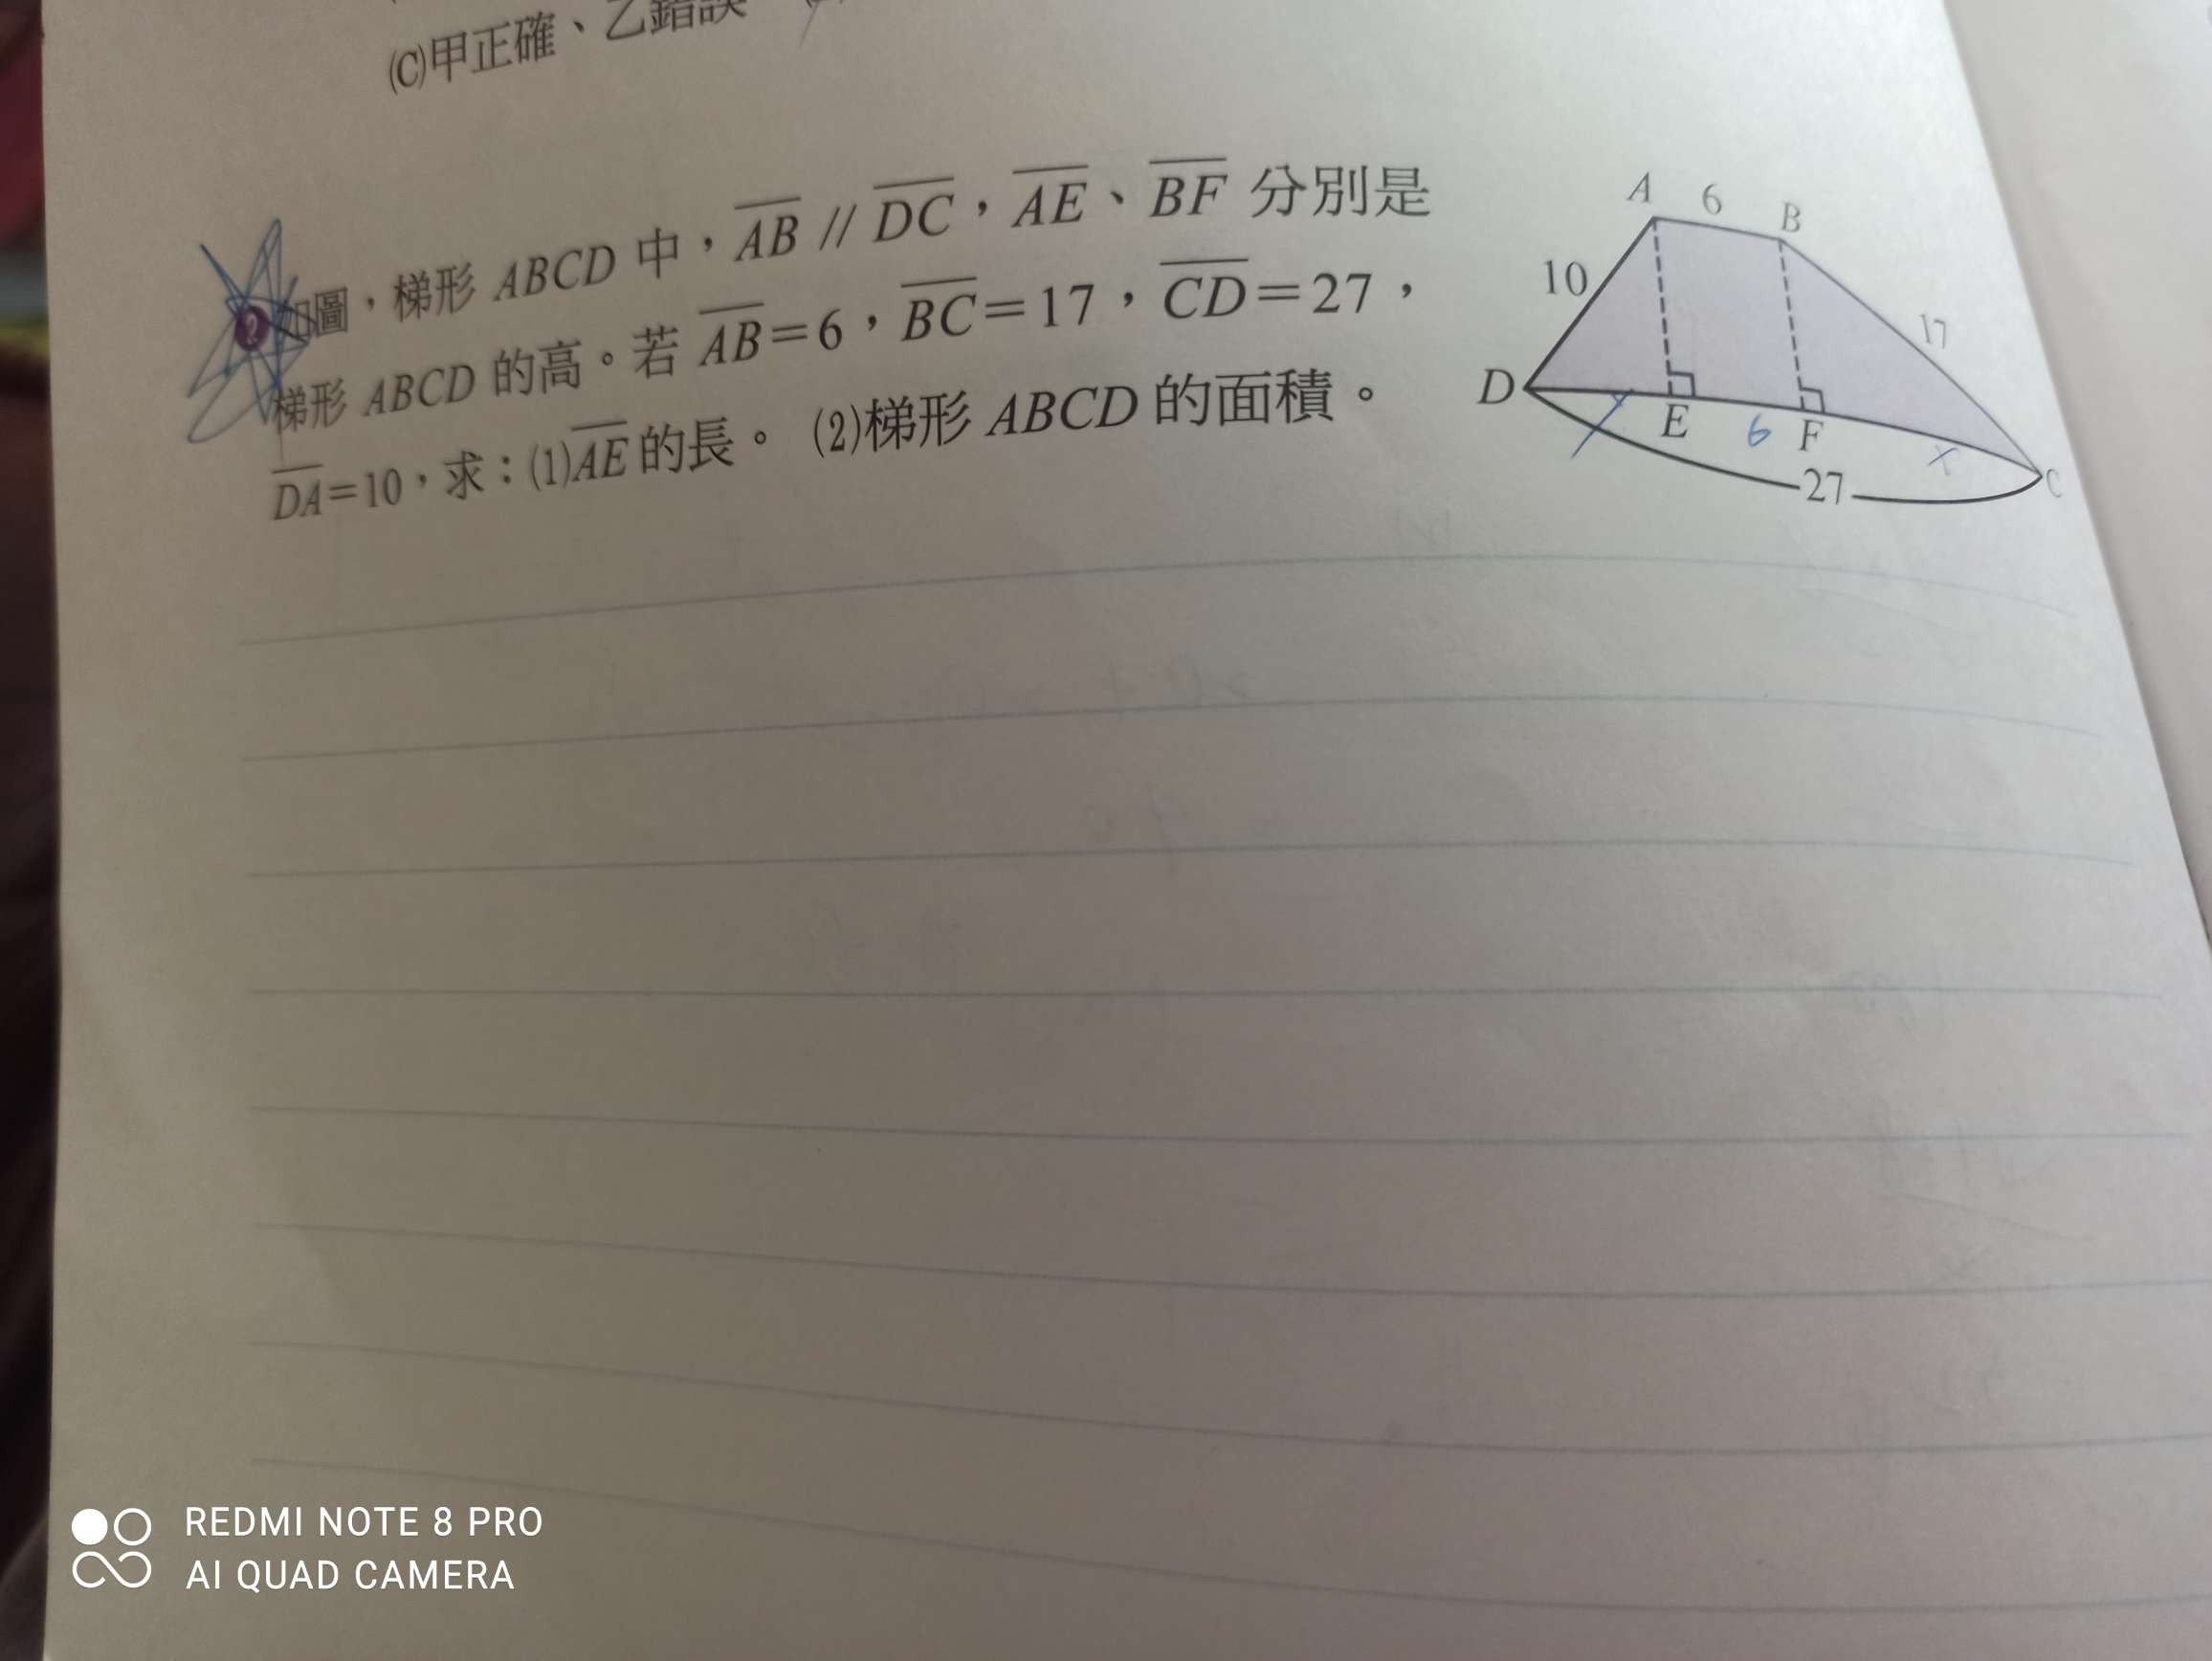 (C)甲正確、乙錯誤
2 如圖，梯形 ABCD 中，AB // DC，AE、BF 分別是
梯形 ABCD 的高。若 AB=6，BC=17，CD=27，
DA=10，求：(1)AE的長。 (2)梯形 ABCD 的面積。
A 6 B
10
17
D E 6 F x C
27
REDMI NOTE 8 PRO
AI QUAD CAMERA